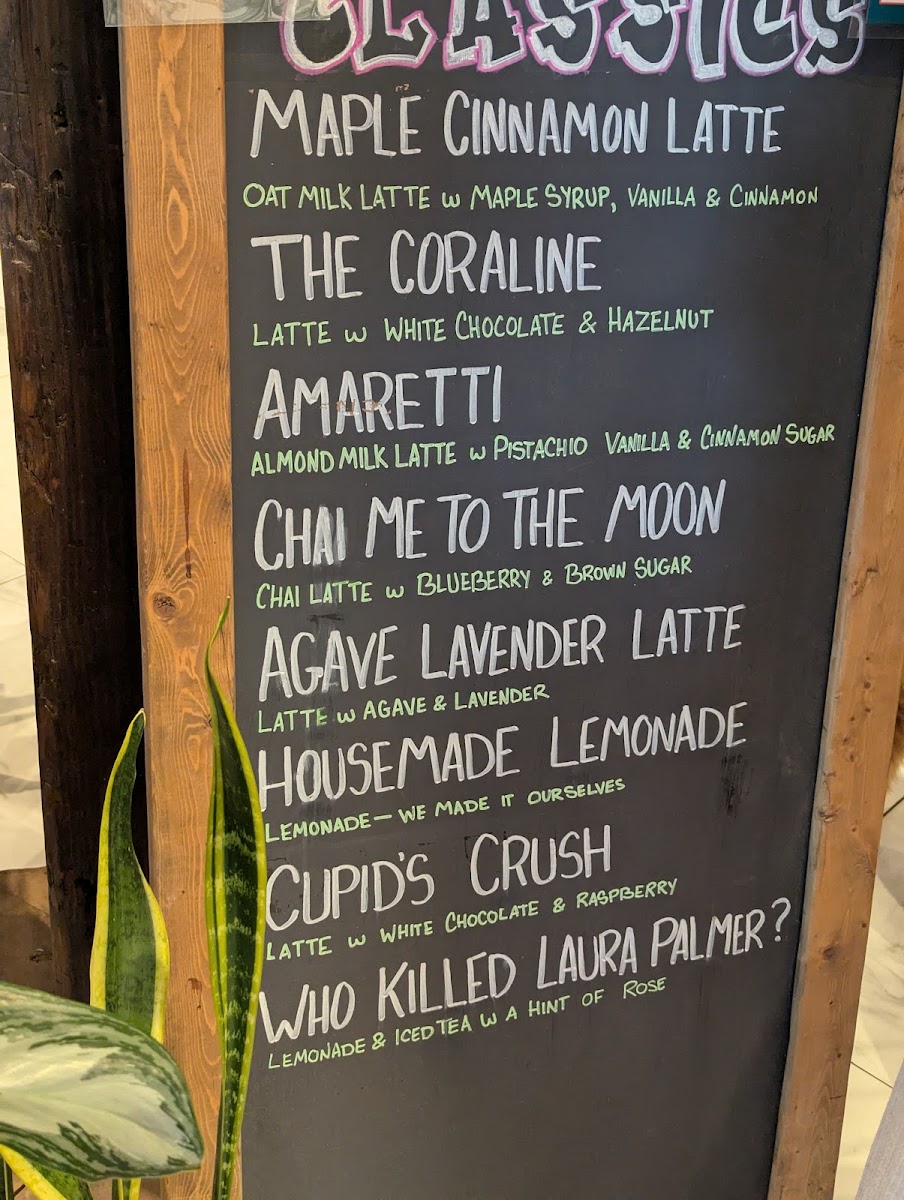 CLASSICS
MAPLE CINNAMON LATTE
OAT MILK LATTE w MAPLE SYRUP, VANILLA & CINNAMON
THE CORALINE
LATTE w WHITE CHOCOLATE & HAZELNUT
AMARETTI
ALMOND MILK LATTE w PISTACHIO VANILLA & CINNAMON SUGAR
CHAI ME TO THE MOON
CHAI LATTE w BLUEBERRY & BROWN SUGAR
AGAVE LAVENDER LATTE
LATTE w AGAVE & LAVENDER
HOUSEMADE LEMONADE
LEMONADE — WE MADE IT OURSELVES
CUPID'S CRUSH
LATTE w WHITE CHOCOLATE & RASPBERRY
WHO KILLED LAURA PALMER?
LEMONADE & ICED TEA W A HINT OF ROSE